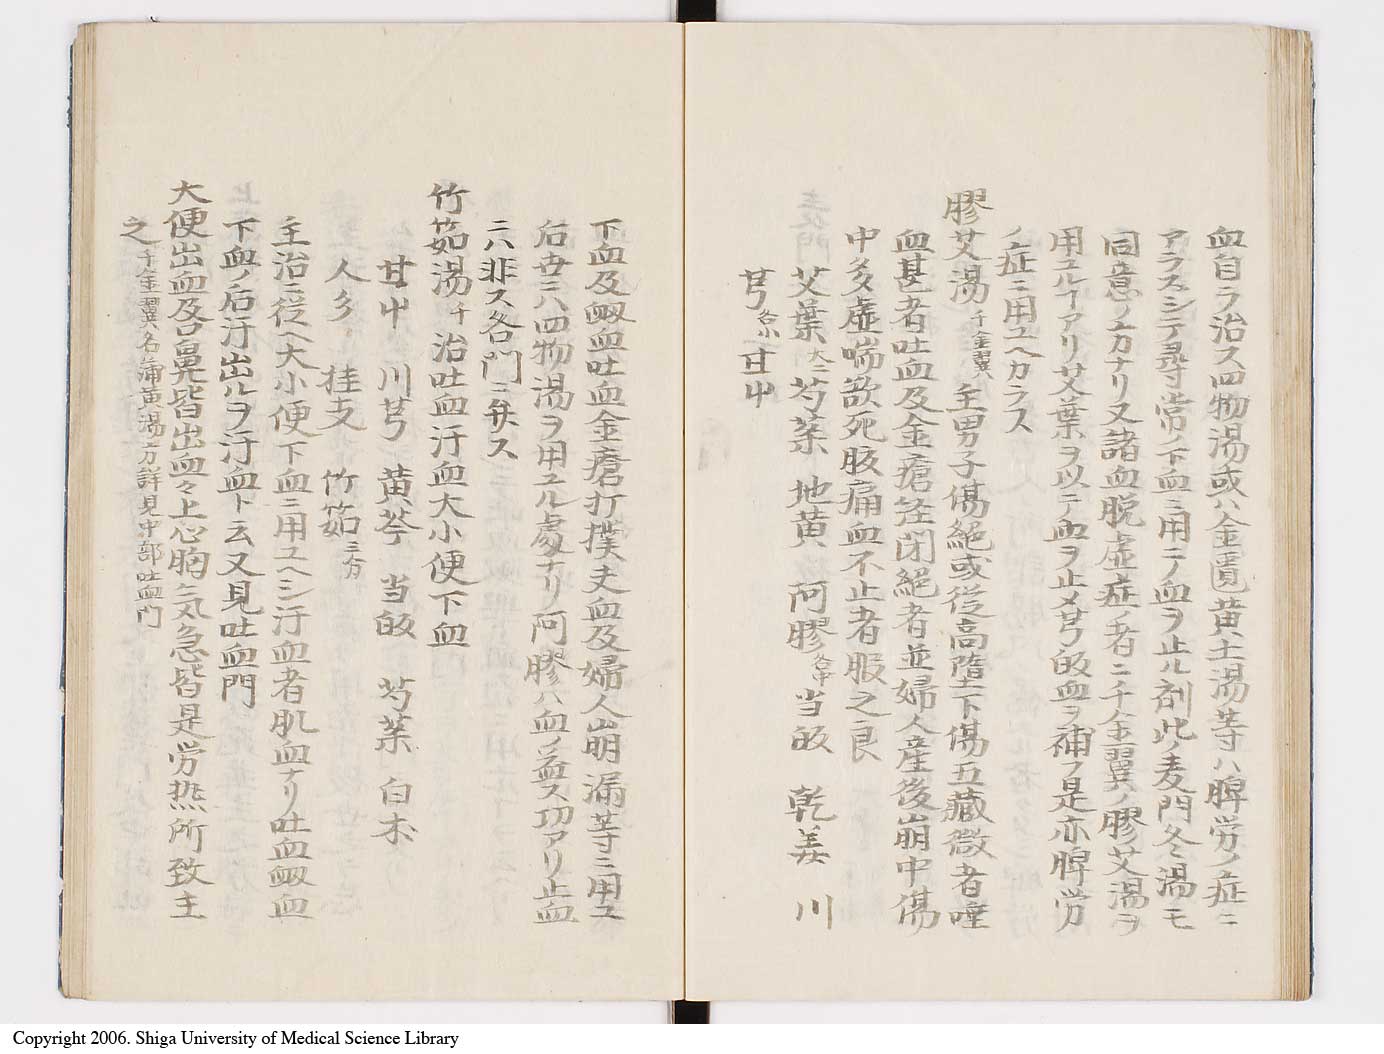 血自ラ治ス四物湯或ハ金匱黄土湯等ハ脾労ノ症ニ
アラスシテ尋常ノ下血ニ用ニテ血ヲ止ル剤此ノ麦門冬湯モ
同意ノ方ナリ又諸血脱虚症ノ者ニ千金翼ノ膠艾湯ヲ
用ユルヿアリ艾葉ヲ以ニテ血ヲ止メ芎皈血ヲ補フ是亦脾労
ノ症ニ用ユヘカラス
膠艾湯 千金翼 主男子傷絶或従高墮下傷五藏微者唾
血甚者吐血及金瘡経閉絶者並婦人産後崩中傷
中多虚喘欲死胶痛血不止者服之良
艾葉 大二 芍薬 地黄 阿膠 各中 当皈 乾姜 川
芎 各小 甘艸
下血及衂血吐血金瘡打撲丈血及婦人崩漏等ニ用ユ
后世ハ四物湯ヲ用ユル處ナリ阿膠ハ血ノ益ス功アリ止血
ニハ非ス各門ニ弁ス
竹茹湯 千 治吐血汗血大小便下血
甘艸 川芎 黄芩 当皈 芍薬 白朮
人參 桂支 竹茹 三方
主治ニ従ヘ大小便下血ニ用ユヘシ汗血者肌血ナリ吐血衂血
下血ノ后汗出ルヲ汗血ト云又見吐血門
大便出血及口鼻皆出血々上心胸氣急皆是労热所致主
之 千金翼ハ名蒲黄湯方詳見中部吐血門
Copyright 2006. Shiga University of Medical Science Library